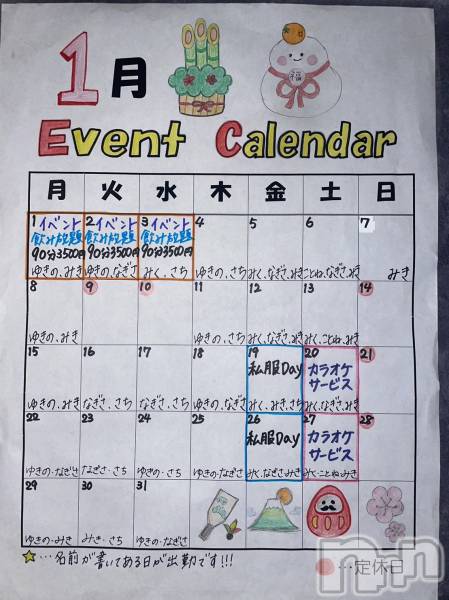 1月
福
Event Calendar
月 火 水 木 金 土 日
1 イベント
飲み放題
90分3500円
ゆきの、みき
2 イベント
飲み放題
90分3500円
ゆきの、なぎさ
3 イベント
飲み放題
90分3500円
みく、さち
4
ゆきの、さち
5
みく、なぎさ、みき
6
ことね、なぎさ、みき
7
みき
8
ゆきの、みき
9
10
11
ゆきの、さち
12
みく、なぎさ、みき
13
みく、ことね、みき
14
15
ゆきの、みき
16
なぎさ、さち
17
なぎさ、さち
18
ゆきの、なぎさ
19
私服Day
みく、みき、さち
20
カラオケ
サービス
みく、なぎさ、みき
21
22
ゆきの・なぎさ
23
なぎさ・さち
24
ゆきの・さち
25
ゆきの・なぎさ
26
私服Day
みく、なぎさ、みき
27
カラオケ
サービス
みく・ことね・みき
28
29
ゆきの・みき
30
みき・さち
31
ゆきの・なぎさ
…名前が書いてある日が出勤です!!!
…定休日